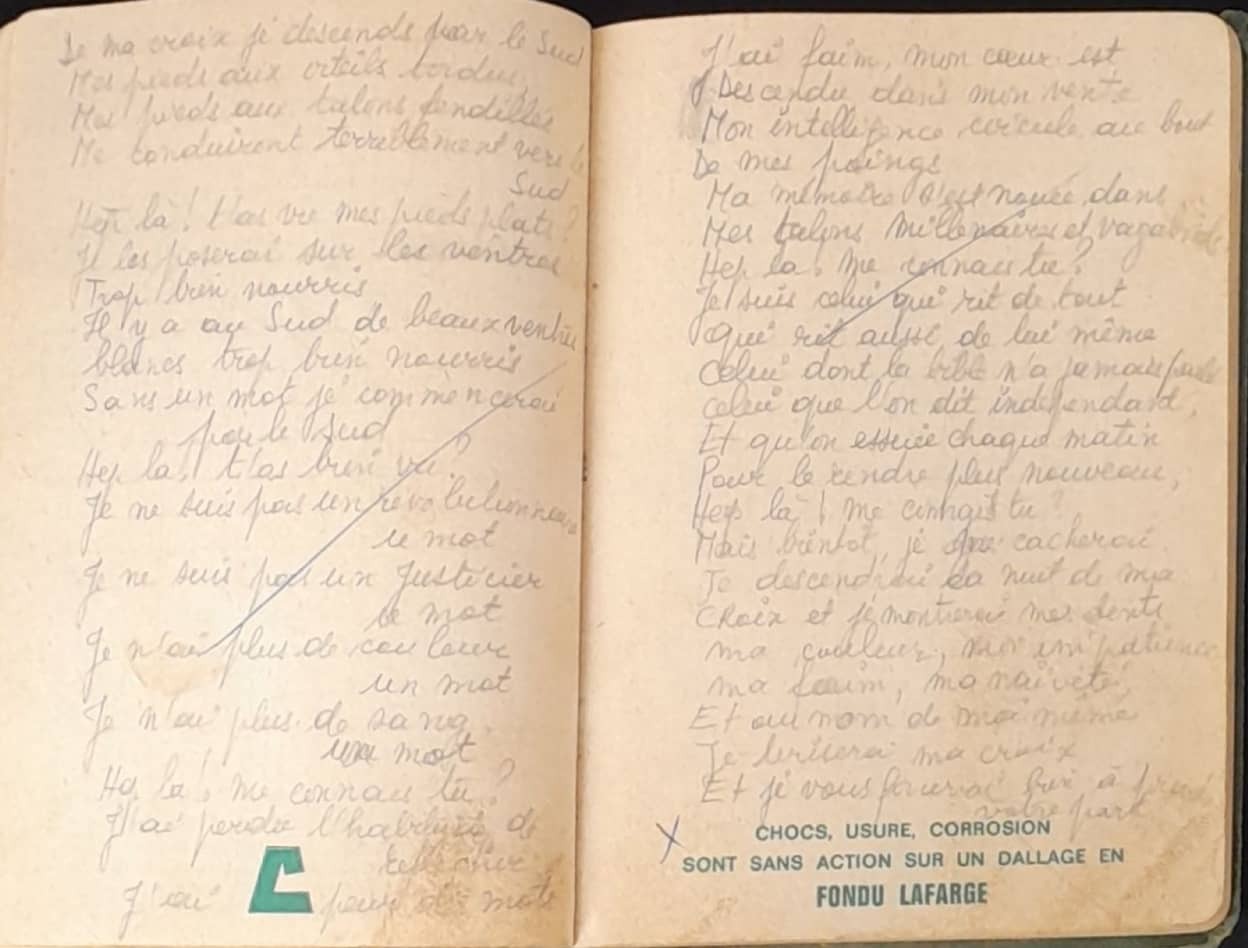 De ma croix je descends par le Sud
Mes pieds aux orteils tordus,
Mes pieds aux talons fendillés
Me conduiront terriblement vers le
Sud
Hep là ! t'as vu mes pieds plats ?
Je les poserai sur les ventres
Trop bien nourris
Il y a au Sud de beaux ventres
blancs trop bien nourris
Sans un mot je commencerai
par le Sud
Hep là ! t'as bien vu ?
Je ne suis pas un révolutionnaire
le mot
Je ne suis pas un Justicier
le mot
Je n'ai plus de couleur
un mot
Je n'ai plus de sang
un mot
Hep là ! me connais tu ?
J'ai perdu l'habitude de
J'ai peur des mots
J'ai faim, mon cœur est
Descendu dans mon ventre
Mon intelligence circule au bout
De mes poings
Ma mémoire s'est nouée dans
Mes talons millénaires et vagabonds
Hep là ! me connais tu ?
Je suis celui qui rit de tout
Qui rit aussi de lui même
Celui dont la bible n'a jamais parlé
Celui que l'on dit indépendant,
Et qu'on essuie chaque matin
Pour le rendre plus nouveau,
Hep là ! me connais tu ?
Mais bientôt, je me cacherai
Je descendrai la nuit de ma
Croix et je montrerai mes dents
ma couleur, mon impatience
ma faim, ma naïveté,
Et au nom de moi même
Je briserai ma croix
Et je vous
votre part
CHOCS, USURE, CORROSION
SONT SANS ACTION SUR UN DALLAGE EN
FONDU LAFARGE